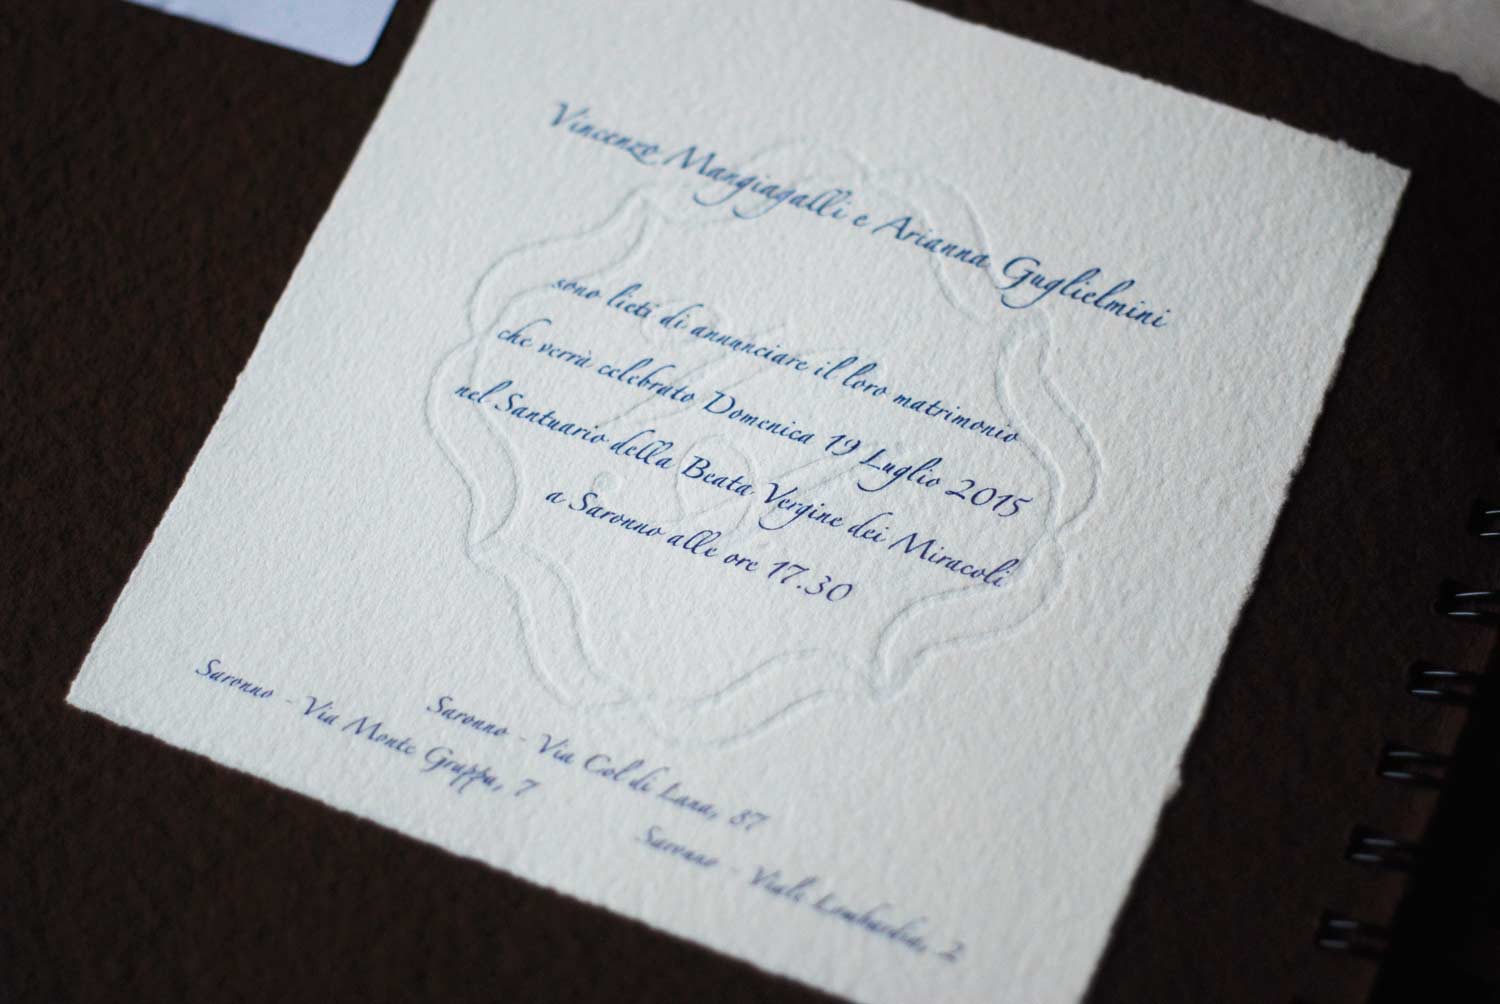 Vincenzo Mangiagalli e Arianna Guglielmini
sono lieti di annunciare il loro matrimonio
che verrà celebrato Domenica 19 Luglio 2015
nel Santuario della Beata Vergine dei Miracoli
a Saronno alle ore 17.30
Saronno - Via Monte Grappa, 7
Saronno - Via Col di Lana, 87
Saronno - Viale Lombardia, 2